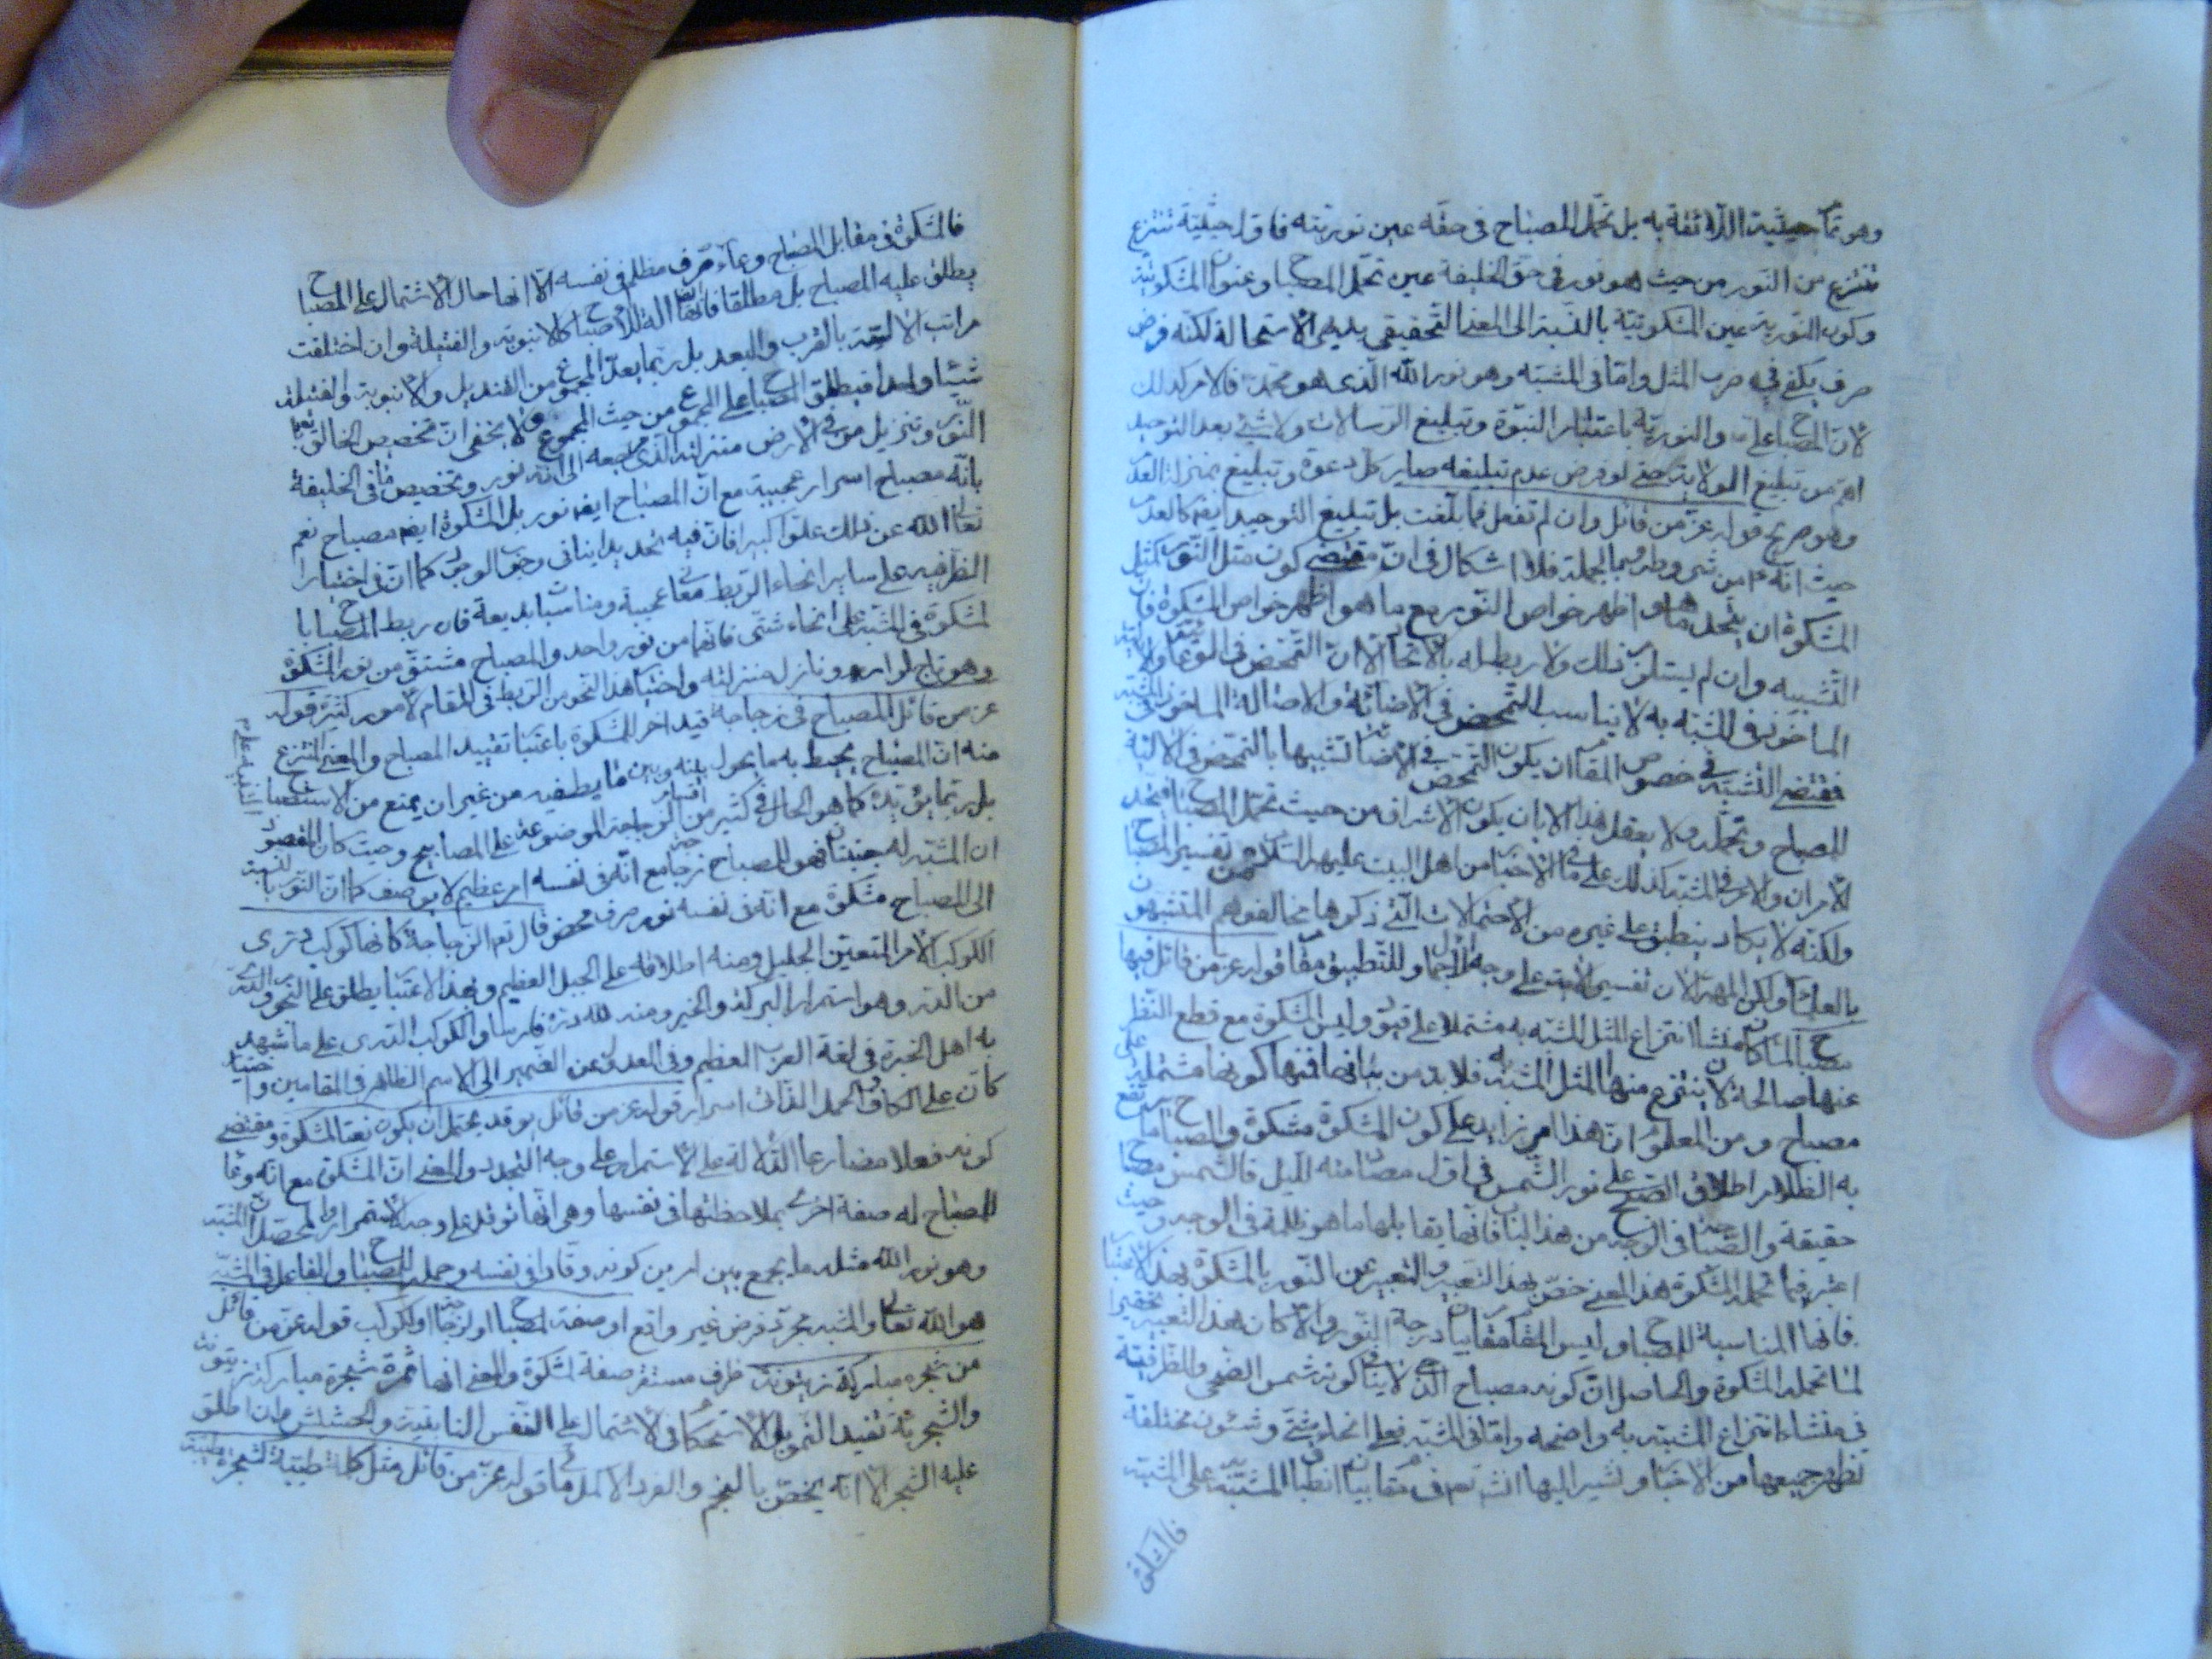 وهو تمام حيثيته اللائقة به بل تحمّل المصباح في حقه عين نوريته فاول حيثية تنتزع
تنتزع من النور من حيث هو نور في حق الخليفة عين تحمّل المصباح وعنوان المشكوتية
وكون النورية عين المشكوتية بالنسبة الى المعنى التحقيقي بديهي الاستحالة لكنه فرض
صرف يكفي في ضرب المثل واما في المشبه وهو نور الله الذي هو محمد فالامر كذلك
لان المصباح علي والنورية باعتبار النبوة وتبليغ الرسالات ولا شيء بعد التوحيد
اهم من تبليغ الولاية حتى لو فرض عدم تبليغه صار كل دعوة وتبليغ بمنزلة العدم
وهو صريح قوله عز من قائل وان لم تفعل فما بلغت بل تبليغ التوحيد ايضا كالعدم
حيث انه من شروطه وبالجملة فلا اشكال في ان مقتضى كون مثل النور كمثل
المشكوة ان يتحد ما هو اظهر خواص النور مع ما هو اظهر خواص المشكوة فان
التشبيه وان لم يستلزم ذلك ولا ربط له بالاتحاد الا ان التمحض في الوعائية
الماخوذ في المشبه به لا يناسب التمحض في الاضائة والاصالة الماخوذ في المشبه
فمقتضى التشبيه في خصوص المقام ان يكون التمحض في الاضائة تشبيها بالتمحض في الالية
للمصباح وتحمله ولا يعقل هذا الا بان يكون الاشراق من حيث تحمل المصباح فيتحد
الامران والامر في المشبه كذلك على ما في الاخبار من اهل البيت عليهم السلام من تفسير المصباح
ولكنه لا يكاد ينطبق على غيره من الاحتمالات التي ذكروها مخالفوهم المتشبهون
بالعلماء ولكن المهم الان تفسير الاية على وجه الاجمال وللتطبيق مقام قوله عز من قائل فيها
مصباح لما كان منشا انتزاع المثل المشبه به مشتملا على قيود وليس المشكوة مع قطع النظر
عنها صالحة لان ينتزع منها المثل المشبه به فلا بد من بيانها فمنها كونها مشتملة على
مصباح ومن المعلوم ان هذا امر زايد على كون المشكوة مشكوة والمصباح ما يرتفع
به الظلام اطلاق الصبح على نور الشمس في اول مصادمته لليل فالشمس مصباح
حقيقة والصباحة في الوجه من هذا الباب فانها يقابلها ما هو ظلمة في الوجه وحيث
اعتبر فيما تحمله المشكوة هذا المعنى خص بهذا التعبير والتعبير عن النور بالمشكوة بهذا الاعتبار
فانها المناسبة للمصباح وليس المقام مقام بيان درجة النور والا كان هذا التعبير تحقيرا
لما تحمله المشكوة والحاصل ان كونه مصباح الدجى لا ينافي كونه شمس الضحى والظرفية
في منشاء انتزاع المشبه به واضحة واما في المشبه فعلى انحاء شتى وشئون مختلفة
تظهر جميعها من الاخبار ونشير اليها انشاء الله تعالى في مقام بيان انطباق المشبه به على المشبه
فالمشكوة
فالمشكوة في مقابل المصباح وعاء صرف مظلم في نفسه الا انها حال الاشتمال على المصباح
يطلق عليه المصباح بل مطلقا فانها ايضا الة للاصباح كالانبوبة والفتيلة وان اختلفت
مراتب الالية بالقرب والبعد بل ربما يعد المجموع من القنديل والانبوبة والفتيلة
شيئا واحدا فيطلق المصباح على المجموع من حيث المجموع ولا يخفى ان تخصيص الخالق تعالى
النور وتنزيل من في الارض منزلته الذي مرجعه الى انه نور وتخصيص ما في الخليفة
بانه مصباح اسرار عجيبة مع ان المصباح ايضا نور بل المشكوة ايضا مصباح نعم
تعالى الله عن ذلك علوا كبيرا فان فيه تحديدا ينافي وجوب الوجود كما ان في اختيار
الظرفية على ساير انحاء الربط معاني عجيبة ومناسبات بديعة فان ربط المصباح با
لمشكوة في المشبه على انحاء شتى فانهما من نور واحد والمصباح مشتق من نور المشكوة
وهو تاج لراسه ونازل منزلته واختيار هذا النحو من الربط في المقام لامور كثيرة قوله
عز من قائل المصباح في زجاجة قيد اخر للمشكوة باعتبار تقييد المصباح والمعنى المنتزع
منه ان المصباح يحيط به ما يحول بينه وبين ما يطفيه من غير ان يمنع من الاستصباح
بل ربما يؤيده كما هو الحال في كثير من اقسام الزجاجة الموضوعة على المصابيح وحيث كان المقصود
ان المشبه له جنبتان فهو للمصباح زجاجة مع انه في نفسه امر عظيم لا يوصف كما ان النور بالنسبة
الى المصباح مشكوة مع انه في نفسه نور صرف محض قال تعالى الزجاجة كانها كوكب دري
الكوكب الامر المتعين الجليل ومنه اطلاقه على الجبل العظيم وبهذا الاعتبار يطلق على النجوم والدري
من الدر وهو استمرار البركة والخير ومنه لله دره فارسا والكوكب الدري على ما شهد
به اهل الخبرة في لغة العرب العظيم وفي العدول عن الضمير الى الاسم الظاهر في المقامين واختيار
كان على الكاف والحمل الذاتي اسرار قوله عز من قائل يوقد يحتمل ان يكون نعتا للمشكوة ومقتضى
كونه فعلا مضارعا الدلالة على الاستمرار على وجه التجدد والمعنى ان المشكوة مع انه وعاء
للمصباح له صفة اخرى بملاحظتها في نفسها وهي انها توقد على وجه الاستمرار والمحصل ان المشبه
وهو نور الله مثله ما يجمع بين امرين كونه وقادا في نفسه وحمله للمصباح والفاعل في المشبه
هو الله تعالى والمشبه به مجرد فرض غير واقع او صفة لمصباح او لزجاجة او لكوكب قوله عز من قائل
من شجرة مباركة زيتونة ظرف مستقر صفة لمشكوة والمعنى انها ثمرة شجرة مباركة زيتونة
والشجرية تفيد النمو بل الاستحكام في لاشتمال على النفس النباتية والحشيش وان اطلق
عليه الشجر الا انه يختص بالنجم والفرد الاكمل ما في قوله عز من قائل مثل كلمة طيبة كشجرة طيبة